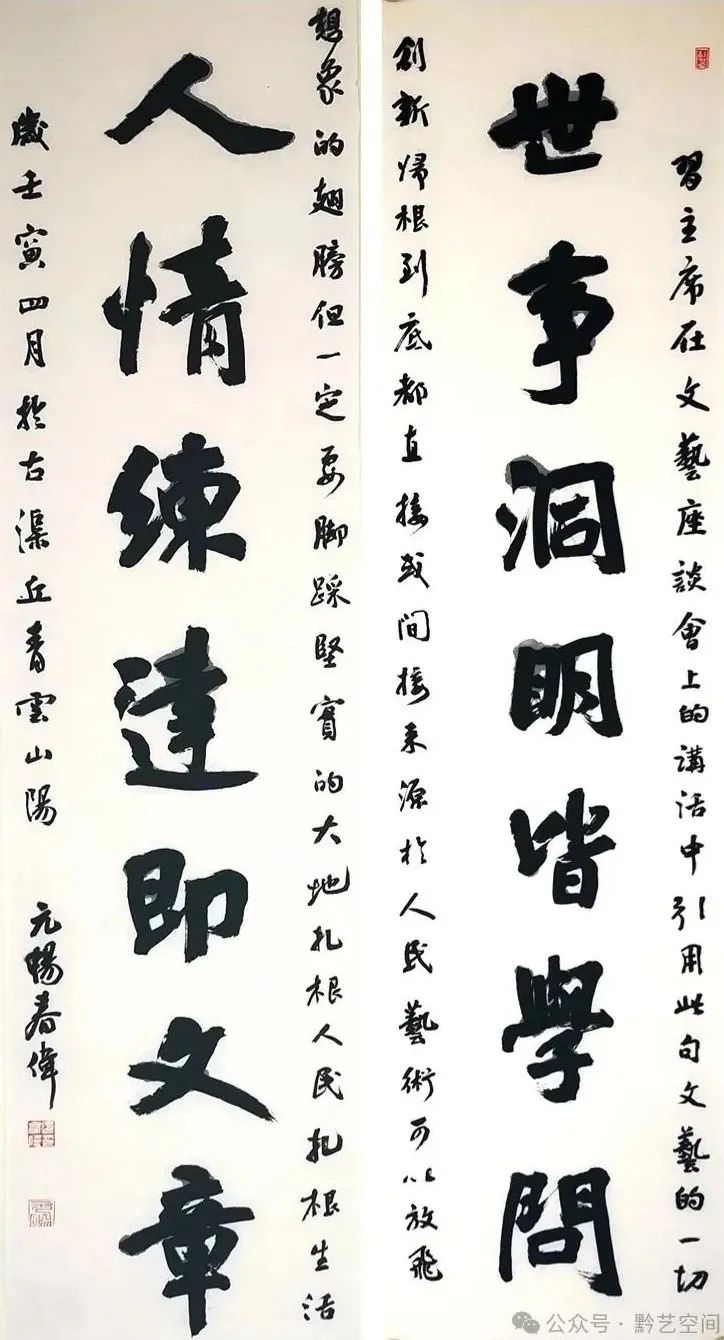 習主席在文藝座談會上的講話中引用此句文藝的一切
世事洞明皆學問
創新歸根到底都直接或間接來源於人民藝術可以放飛
想象的翅膀但一定要脚踩堅實的大地扎根人民扎根生活
人情練達即文章
歲壬寅四月於古渠丘青雲山陽
元暢春偉
公众号·黔艺空间